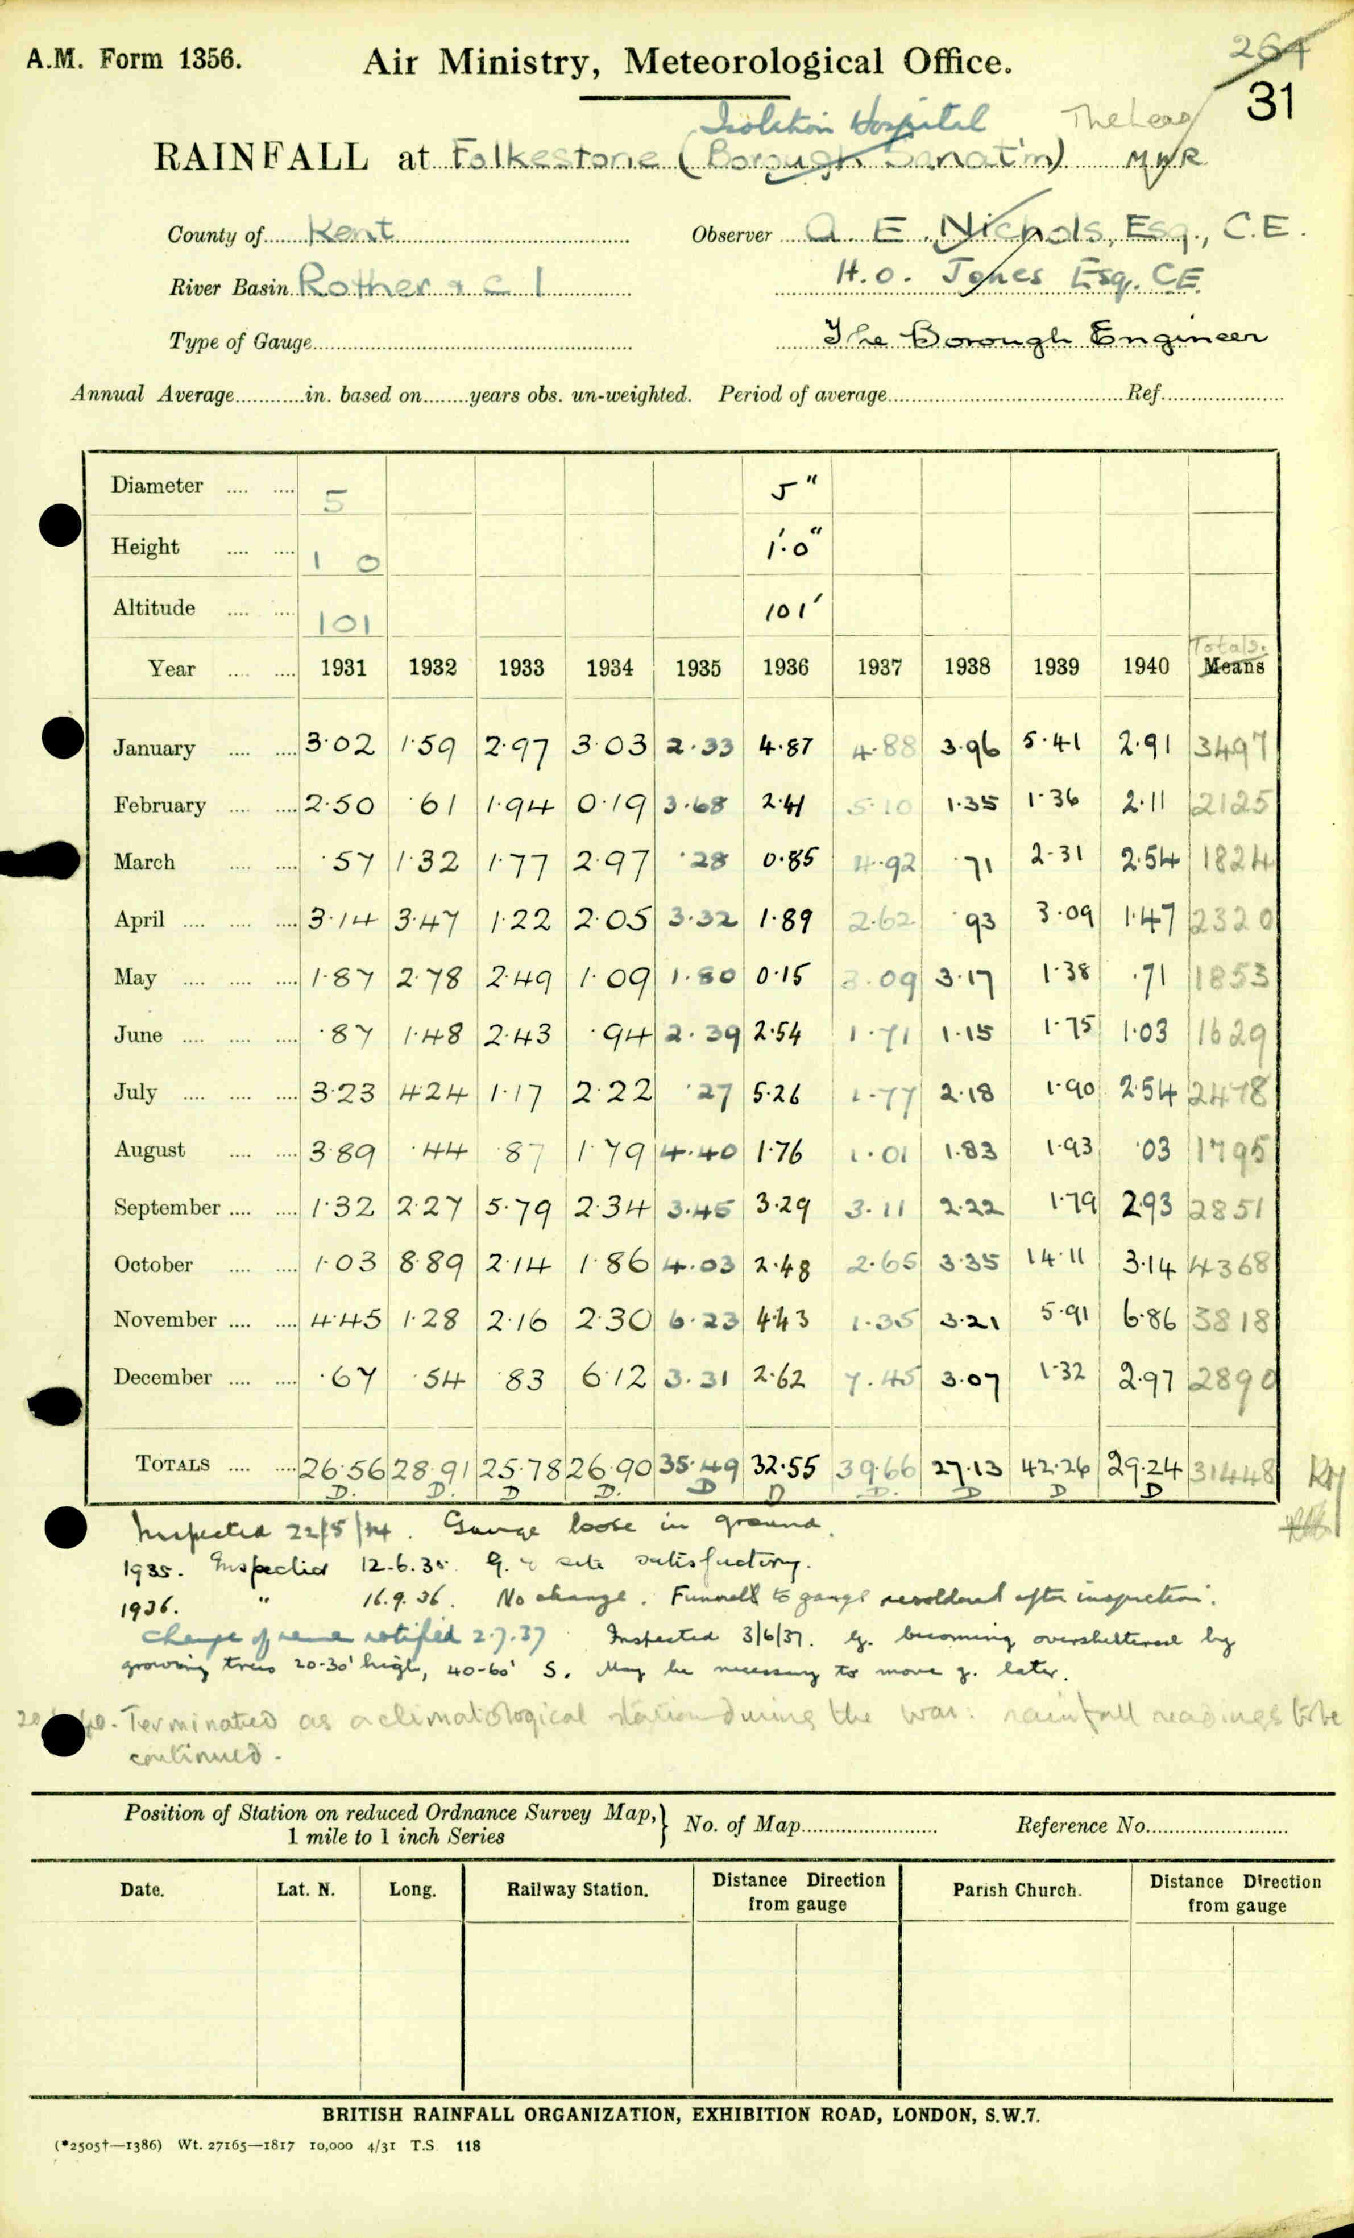 A.M. Form 1356.
Air Ministry, Meteorological Office.
264
31
Isolation Hospital
RAINFALL at Folkestone (Borough Sanat'm)
County of Kent
Observer A. E. Nichols, Esq., C.E.
River Basin Rother & c 1
H.O. Jones Esq. CE
Type of Gauge
The Borough Engineer
Annual Average in. based on years obs. un-weighted. Period of average Ref.
Diameter 5 5"
Height 1 0 1'.0"
Altitude 101 101'
Totals.
Year 1931 1932 1933 1934 1935 1936 1937 1938 1939 1940 Means
January 3.02 1.59 2.97 3.03 2.33 4.87 4.88 3.96 5.41 2.91 3497
February 2.50 .61 1.94 0.19 3.68 2.41 5.10 1.35 1.36 2.11 2125
March .57 1.32 1.77 2.97 .28 0.85 4.92 .71 2.31 2.54 1824
April 3.14 3.47 1.22 2.05 3.32 1.89 2.62 .93 3.09 1.47 2320
May 1.87 2.78 2.49 1.09 1.80 0.15 3.09 3.17 1.38 .71 1853
June .87 1.48 2.43 .94 2.39 2.54 1.71 1.15 1.75 1.03 1629
July 3.23 4.24 1.17 2.22 .27 5.26 1.77 2.18 1.90 2.54 2478
August 3.89 .44 .87 1.79 4.40 1.76 1.01 1.83 1.93 .03 1795
September 1.32 2.27 5.79 2.34 3.45 3.29 3.11 2.22 1.79 2.93 2851
October 1.03 8.89 2.14 1.86 4.03 2.48 2.65 3.35 14.11 3.14 4368
November 4.45 1.28 2.16 2.30 6.23 4.43 1.35 3.21 5.91 6.86 3818
December .67 .54 .83 6.12 3.31 2.62 7.45 3.07 1.32 2.97 2890
TOTALS 26.56 28.91 25.78 26.90 35.49 32.55 39.66 27.13 42.26 29.24 31448
D. D. D D. D D D. D D D
Inspected 22/5/34. Gauge loose in ground.
1935. Inspected 12.6.35. G. & site satisfactory.
1936. " 16.9.36. No change. Funnell to gauge resoldered after inspection.
Change of name notified 2.7.37 Inspected 3/6/37. G. becoming oversheltered by
growing trees 20-30' high, 40-60' S. May be necessary to move g. later.
Terminated as a climatological station during the war. rainfall readings to be
continued.
Position of Station on reduced Ordnance Survey Map,} No. of Map Reference No.
1 mile to 1 inch Series
Date. Lat. N. Long. Railway Station. Distance Direction from gauge Parish Church. Distance Direction from gauge
BRITISH RAINFALL ORGANIZATION, EXHIBITION ROAD, LONDON, S.W.7.
(*2505†—1386) Wt. 27165—1817 10,000 4/31 T.S 118